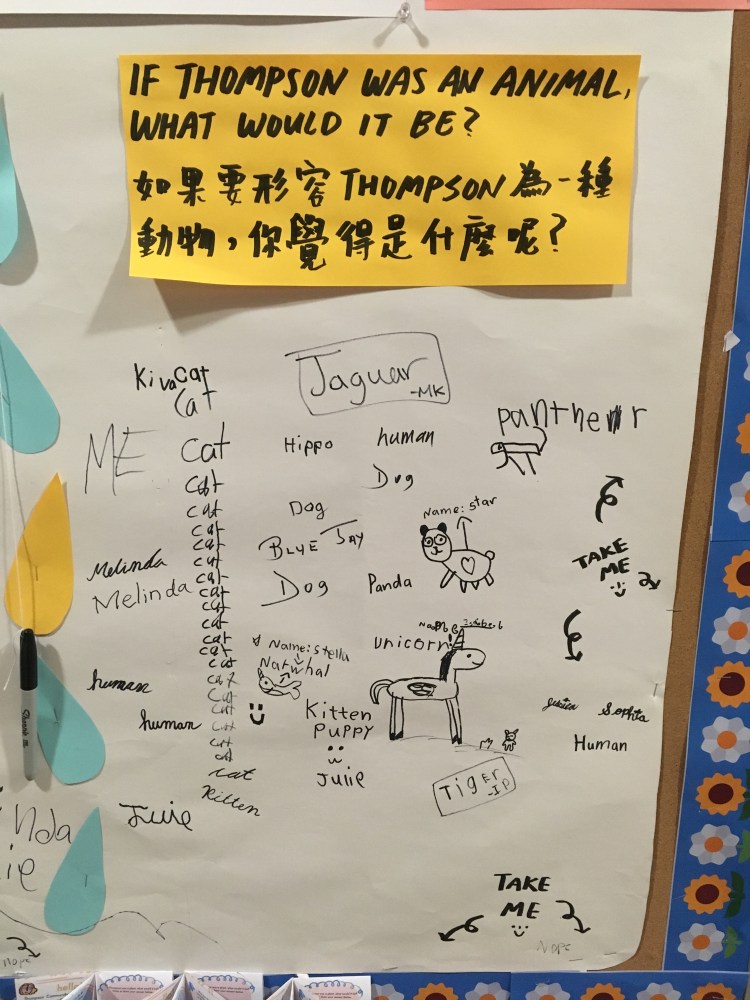 IF THOMPSON WAS AN ANIMAL,
WHAT WOULD IT BE?
如果要形容THOMPSON為一種
動物，你覺得是什麼呢？
Kiva cat
Cat
Jaguar
-MK
panther
ME
cat
Hippo
human
cat
Dog
cat
Dog
Name: star
cat
BLUE JAY
cat
TAKE
ME
Melinda
cat
Melinda
cat
Dog
Panda
cat
cat
cat
cat
unicorn
Name: stella
Narwhal
cat
human
cat
cat
cat
Kitten
PUPPY
Julie
human
cat
cat
cat
cat
Kitten
Jessica
Sophia
Human
TigEr
-JP
Julie
TAKE
ME
Nope
Nope
hello